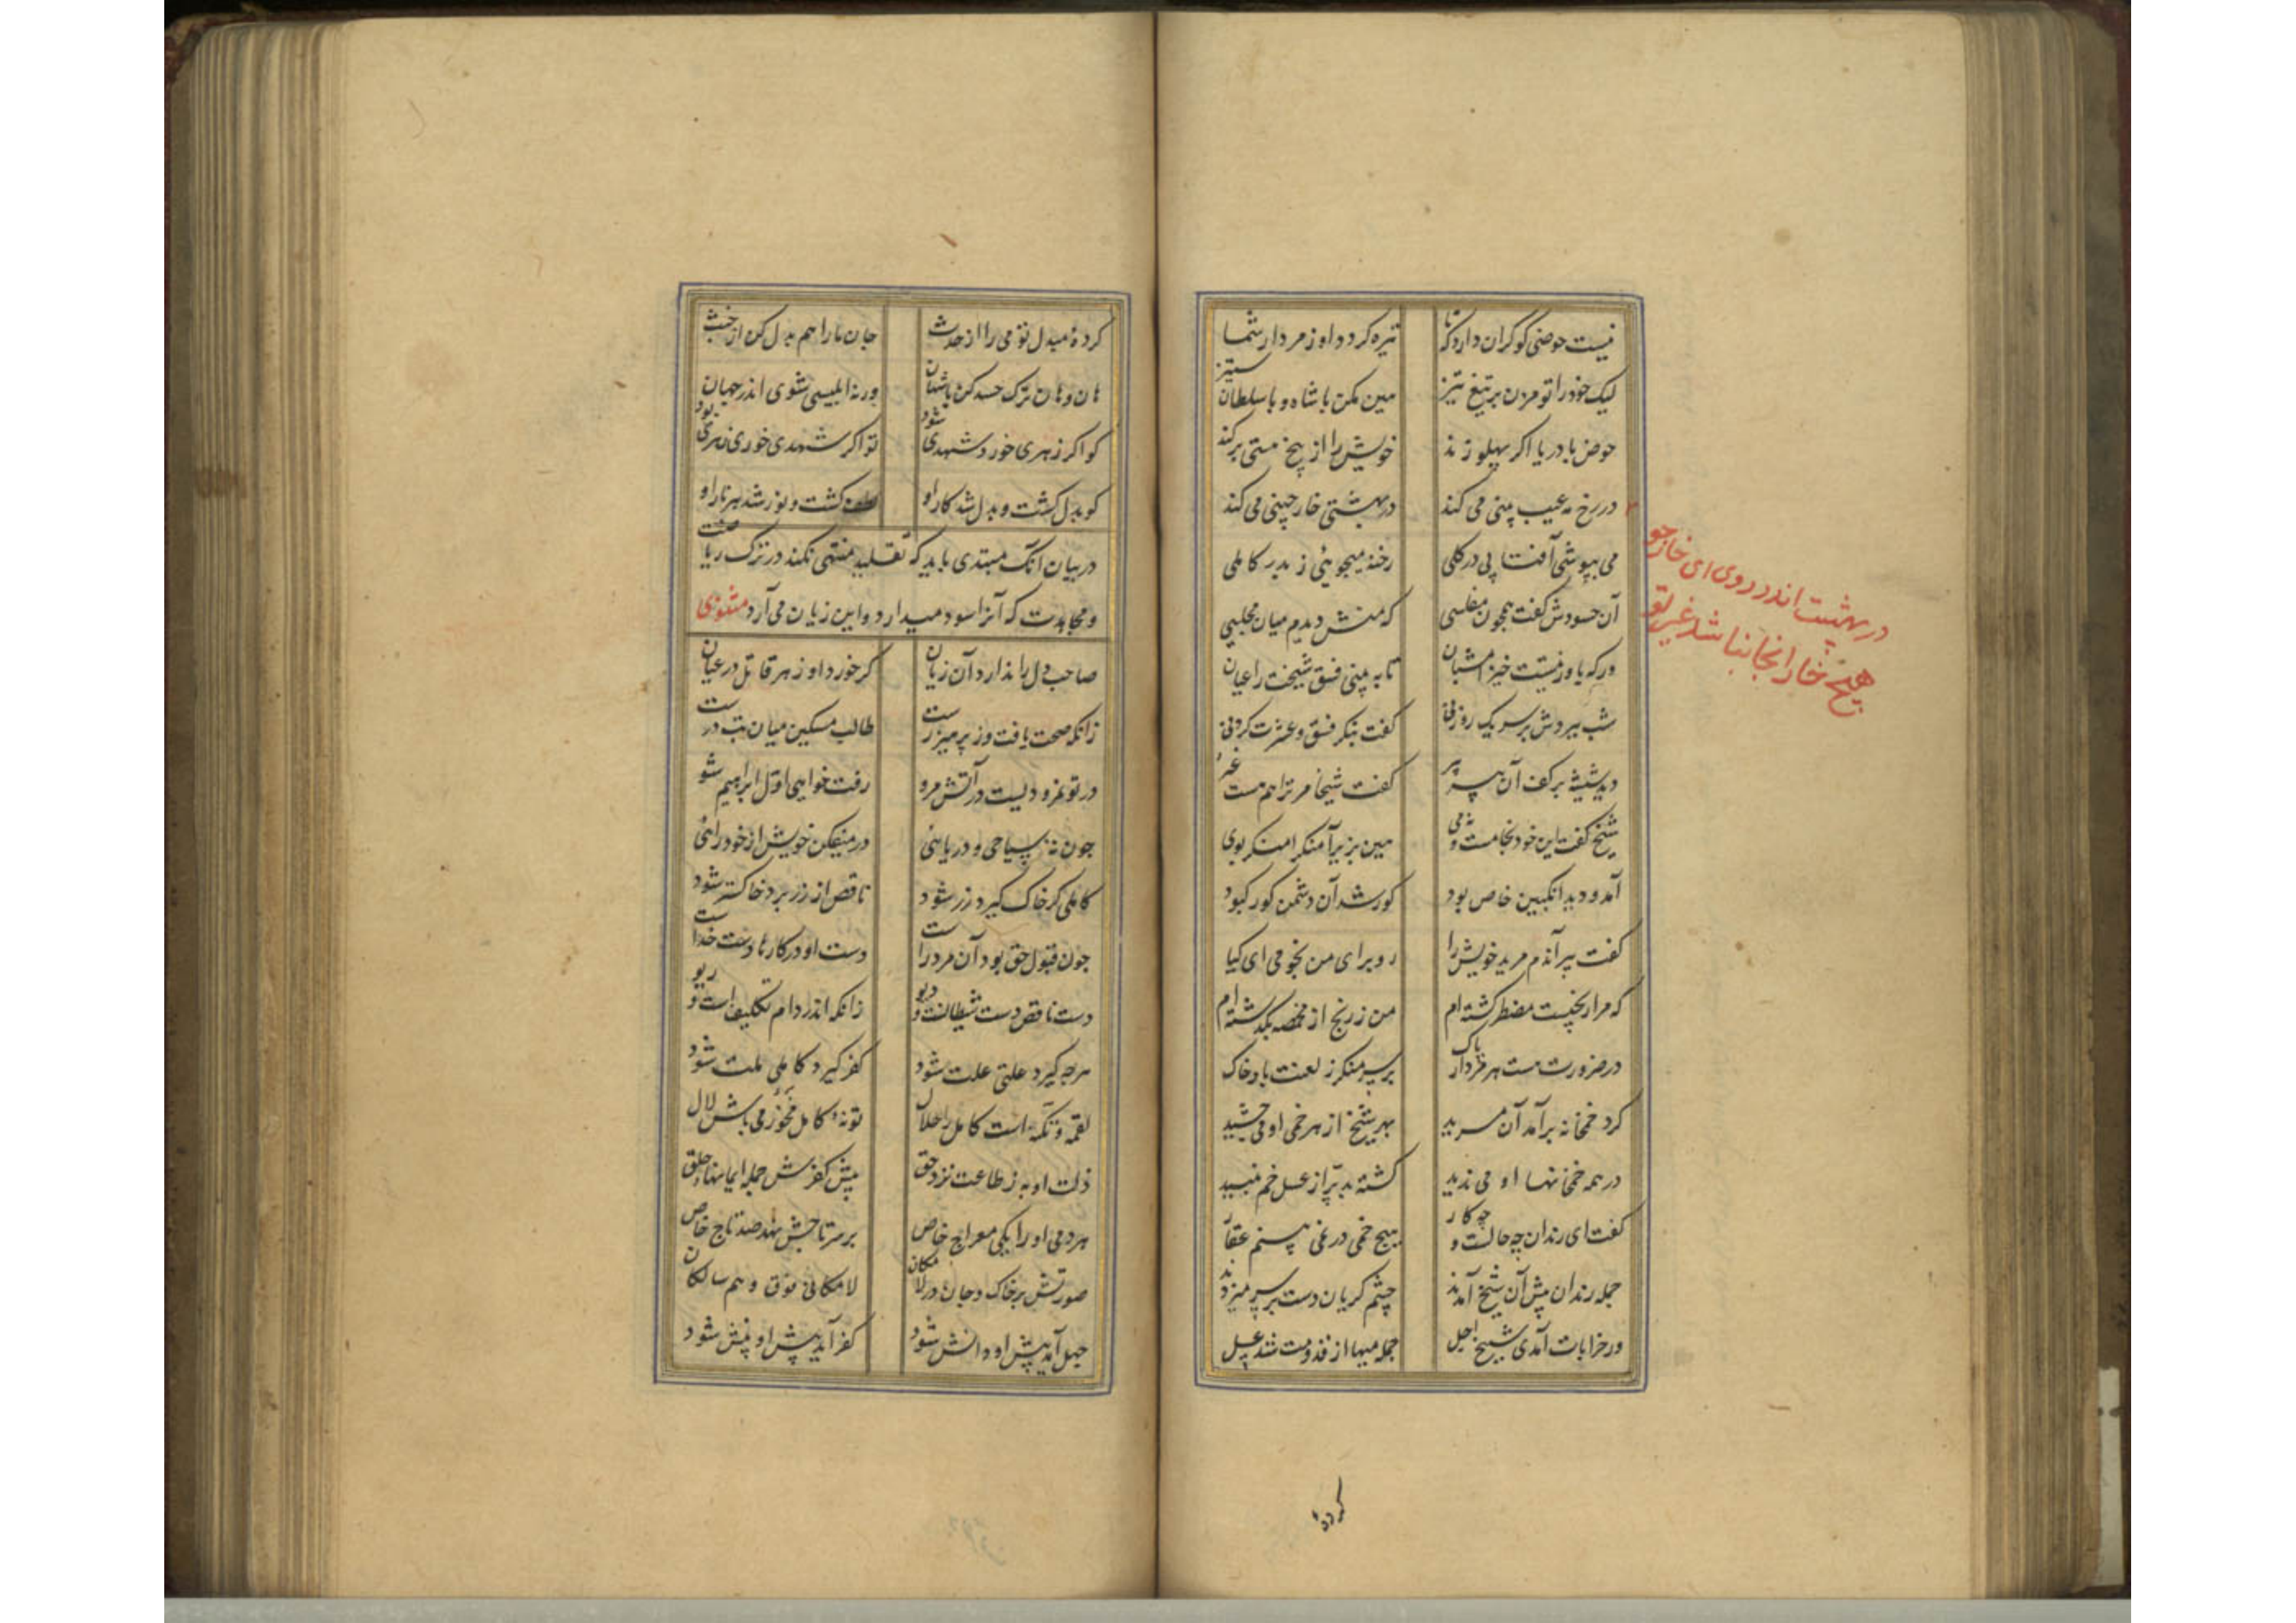 نیست حوضی کو کران دارد که تا تیره کردد او ز مردار شما
لیک خود را تو مزن بر تیغ تیز هین مکن با شاه و با سلطان ستیز
حوض با دریا اکر پهلو زند خویش را از بیخ هستی برکند
در رخ مه عیب بینی می کند در بهشتی خار چینی می کند
در بهشت اندر روی ای خارجو
هیچ خار انجا نباشد غیر تو
می بپوشی آفتابی در کلی رخنه میجوئی ز بدر کاملی
آن حسودش کفت همچون مفلسی که منش دیدم میان مجلسی
ور که باور نیستت خیز امشبان تا به بینی فسق شیخت را عیان
شب ببردش بر سر یک روزنی کفت بنکر فسق و عشرت کردنی
دید شیشه بر کف آن پیر پر کفت شیخا مر ترا هم هست غر
شیخ کفت این خود نه جامست و نه می هین بزیر آ منکرا منکر بوی
آمد و دید انکبین خاص بود کور شد آن دشمن کور کبود
کفت پیر آندم مرید خویش را رو برای من بجو می ای کیا
که مرا رنجیست مضطر کشته ام من ز رنج از مخمصه بکذشته ام
در ضرورت هست هر مردار پاک بر سر منکر ز لعنت باد خاک
کرد خمخانه برآمد آن مرید بهر شیخ از هر خمی او می چشید
در همه خمخانها او می ندید کشته بد پر از عسل خم نبید
کفت ای رندان چه حالست و چه کار هیچ خمی در نمی بینم عقار
جمله رندان پیش آن شیخ آمدند چشم کریان دست بر سر میزدند
در خرابات آمدی شیخ اجل جمله میها از قدومت شد عسل
کرده
کردهٔ مبدل تو می را از حدث جان ما را هم بدل کن از خبث
هان و هان ترک حسد کن با شهان ورنه ابلیسی شوی اندر جهان
کو اکر زهری خورد شهدی شود تو اکر شهدی خوری زهری بود
کو بدل کشت و بدل شد کار او لطف کشت و نور شد هر نار او
در بیان آنک مبتدی باید که تقلید منتهی نکند در ترک ریاضت
و مجاهدت که آنرا سود میدارد و این زیان می آرد مثنوی
صاحب دل را ندارد آن زیان کر خورد او زهر قاتل در عیان
زانکه صحت یافت وز پرهیز رست طالب مسکین میان تب درست
در تو نمرودیست در آتش مرو رفت خواهی اول ابراهیم شو
چون نهٔ سباحی و دریائی در میفکن خویش از خود رائی
کاملی کر خاک کیرد زر شود ناقص از زر برد خاکستر شود
چون قبول حق بود آن مرد راست دست او در کارها دست خداست
دست ناقص دست شیطانست و دیو زانکه اندر دام تکلیف است و ریو
هرچه کیرد علتی علت شود کفر کیرد کاملی ملت شود
لقمه و نکته است کامل را حلال تو نهٔ کامل مخور می باش لال
ذلت او به ز طاعت نزد حق پیش کفرش جمله ایمانها خلق
هر دمی او را یکی معراج خاص بر سر تاجش نهد صد تاج خاص
صورتش بر خاک و جان در لامکان لامکانی فوق وهم سالکان
جهل آمد پیش او دانش شود کفر آید پیش او بینش شود